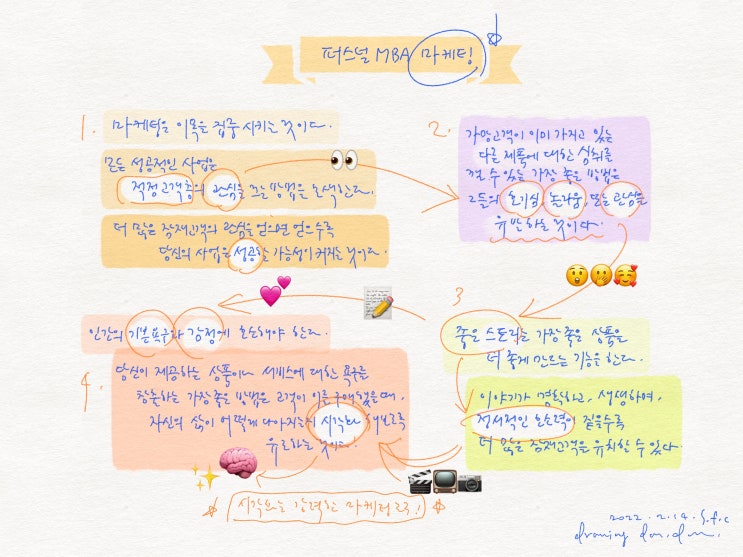 퍼스널 MBA 마케팅
1.
마케팅은 이목을 집중 시키는 것이다.
모든 성공적인 사업은
적정고객층의 관심을 끄는 방법을 모색한다.
더 많은 잠재고객의 관심을 얻으면 얻으수록
당신의 사업은 성공할 가능성이 커지는 것이다.
2.
가망고객이 이미 가지고 있는
다른 제품에 대한 심취를
깰 수 있는 가장 좋은 방법은
그들의 호기심, 놀라움, 또는 관심을
유발하는 것이다.
3
좋은 스토리는 가장 좋은 상품을
더 좋게 만드는 기능을 한다.
이야기가 명확하고, 생생하며,
정서적인 호소력이 짙을수록
더 많은 잠재고객을 유치할 수 있다.
4.
인간의 기본욕구와 감정에 호소해야 한다.
당신이 제공하는 상품이나 서비스에 대한 욕구를
창출하는 가장 좋은 방법은 고객이 이를 구매했을 때,
자신의 삶이 어떻게 나아지는지 시각화 해보도록
유도하는 것이다.
시각화는 강력한 마케터로!
2022.2.14. S.f.c
drawing